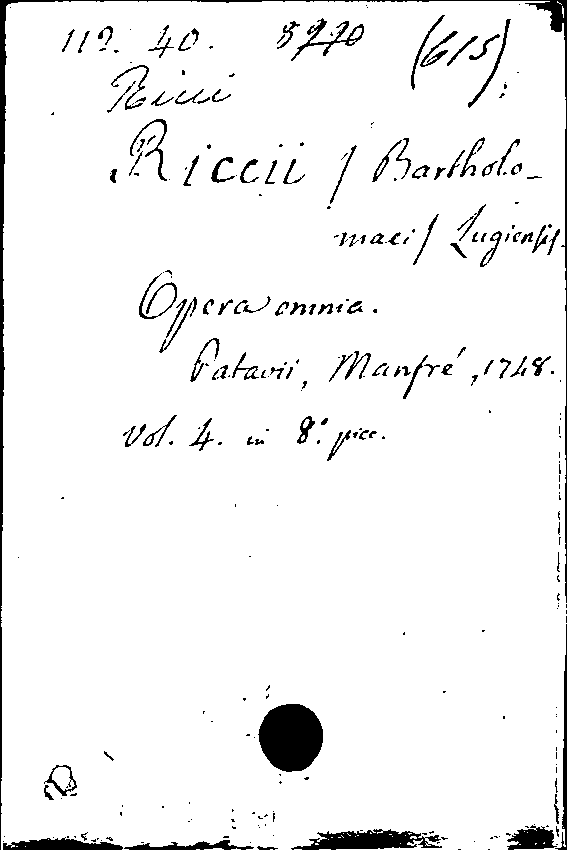 112. 40. (615)
Ricci
Riccii / Bartholo-
maei / Lugiensis.
Opera omnia.
Patavii, Manfré, 1748.
Vol. 4. in 8.° picc.